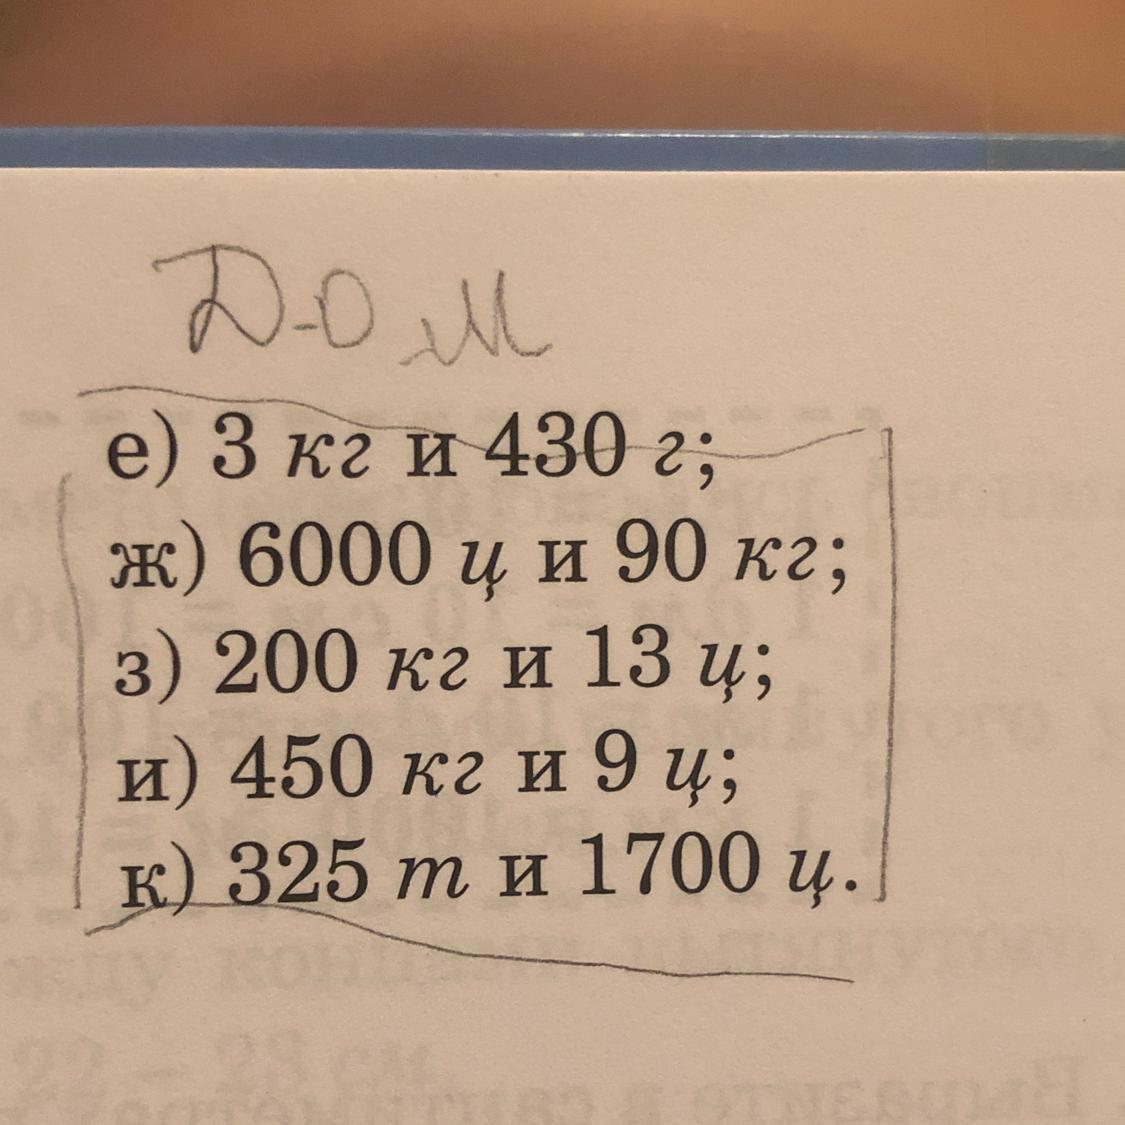 Д-О М
е) 3 кг и 430 г;
ж) 6000 ц и 90 кг;
з) 200 кг и 13 ц;
и) 450 кг и 9 ц;
к) 325 т и 1700 ц.